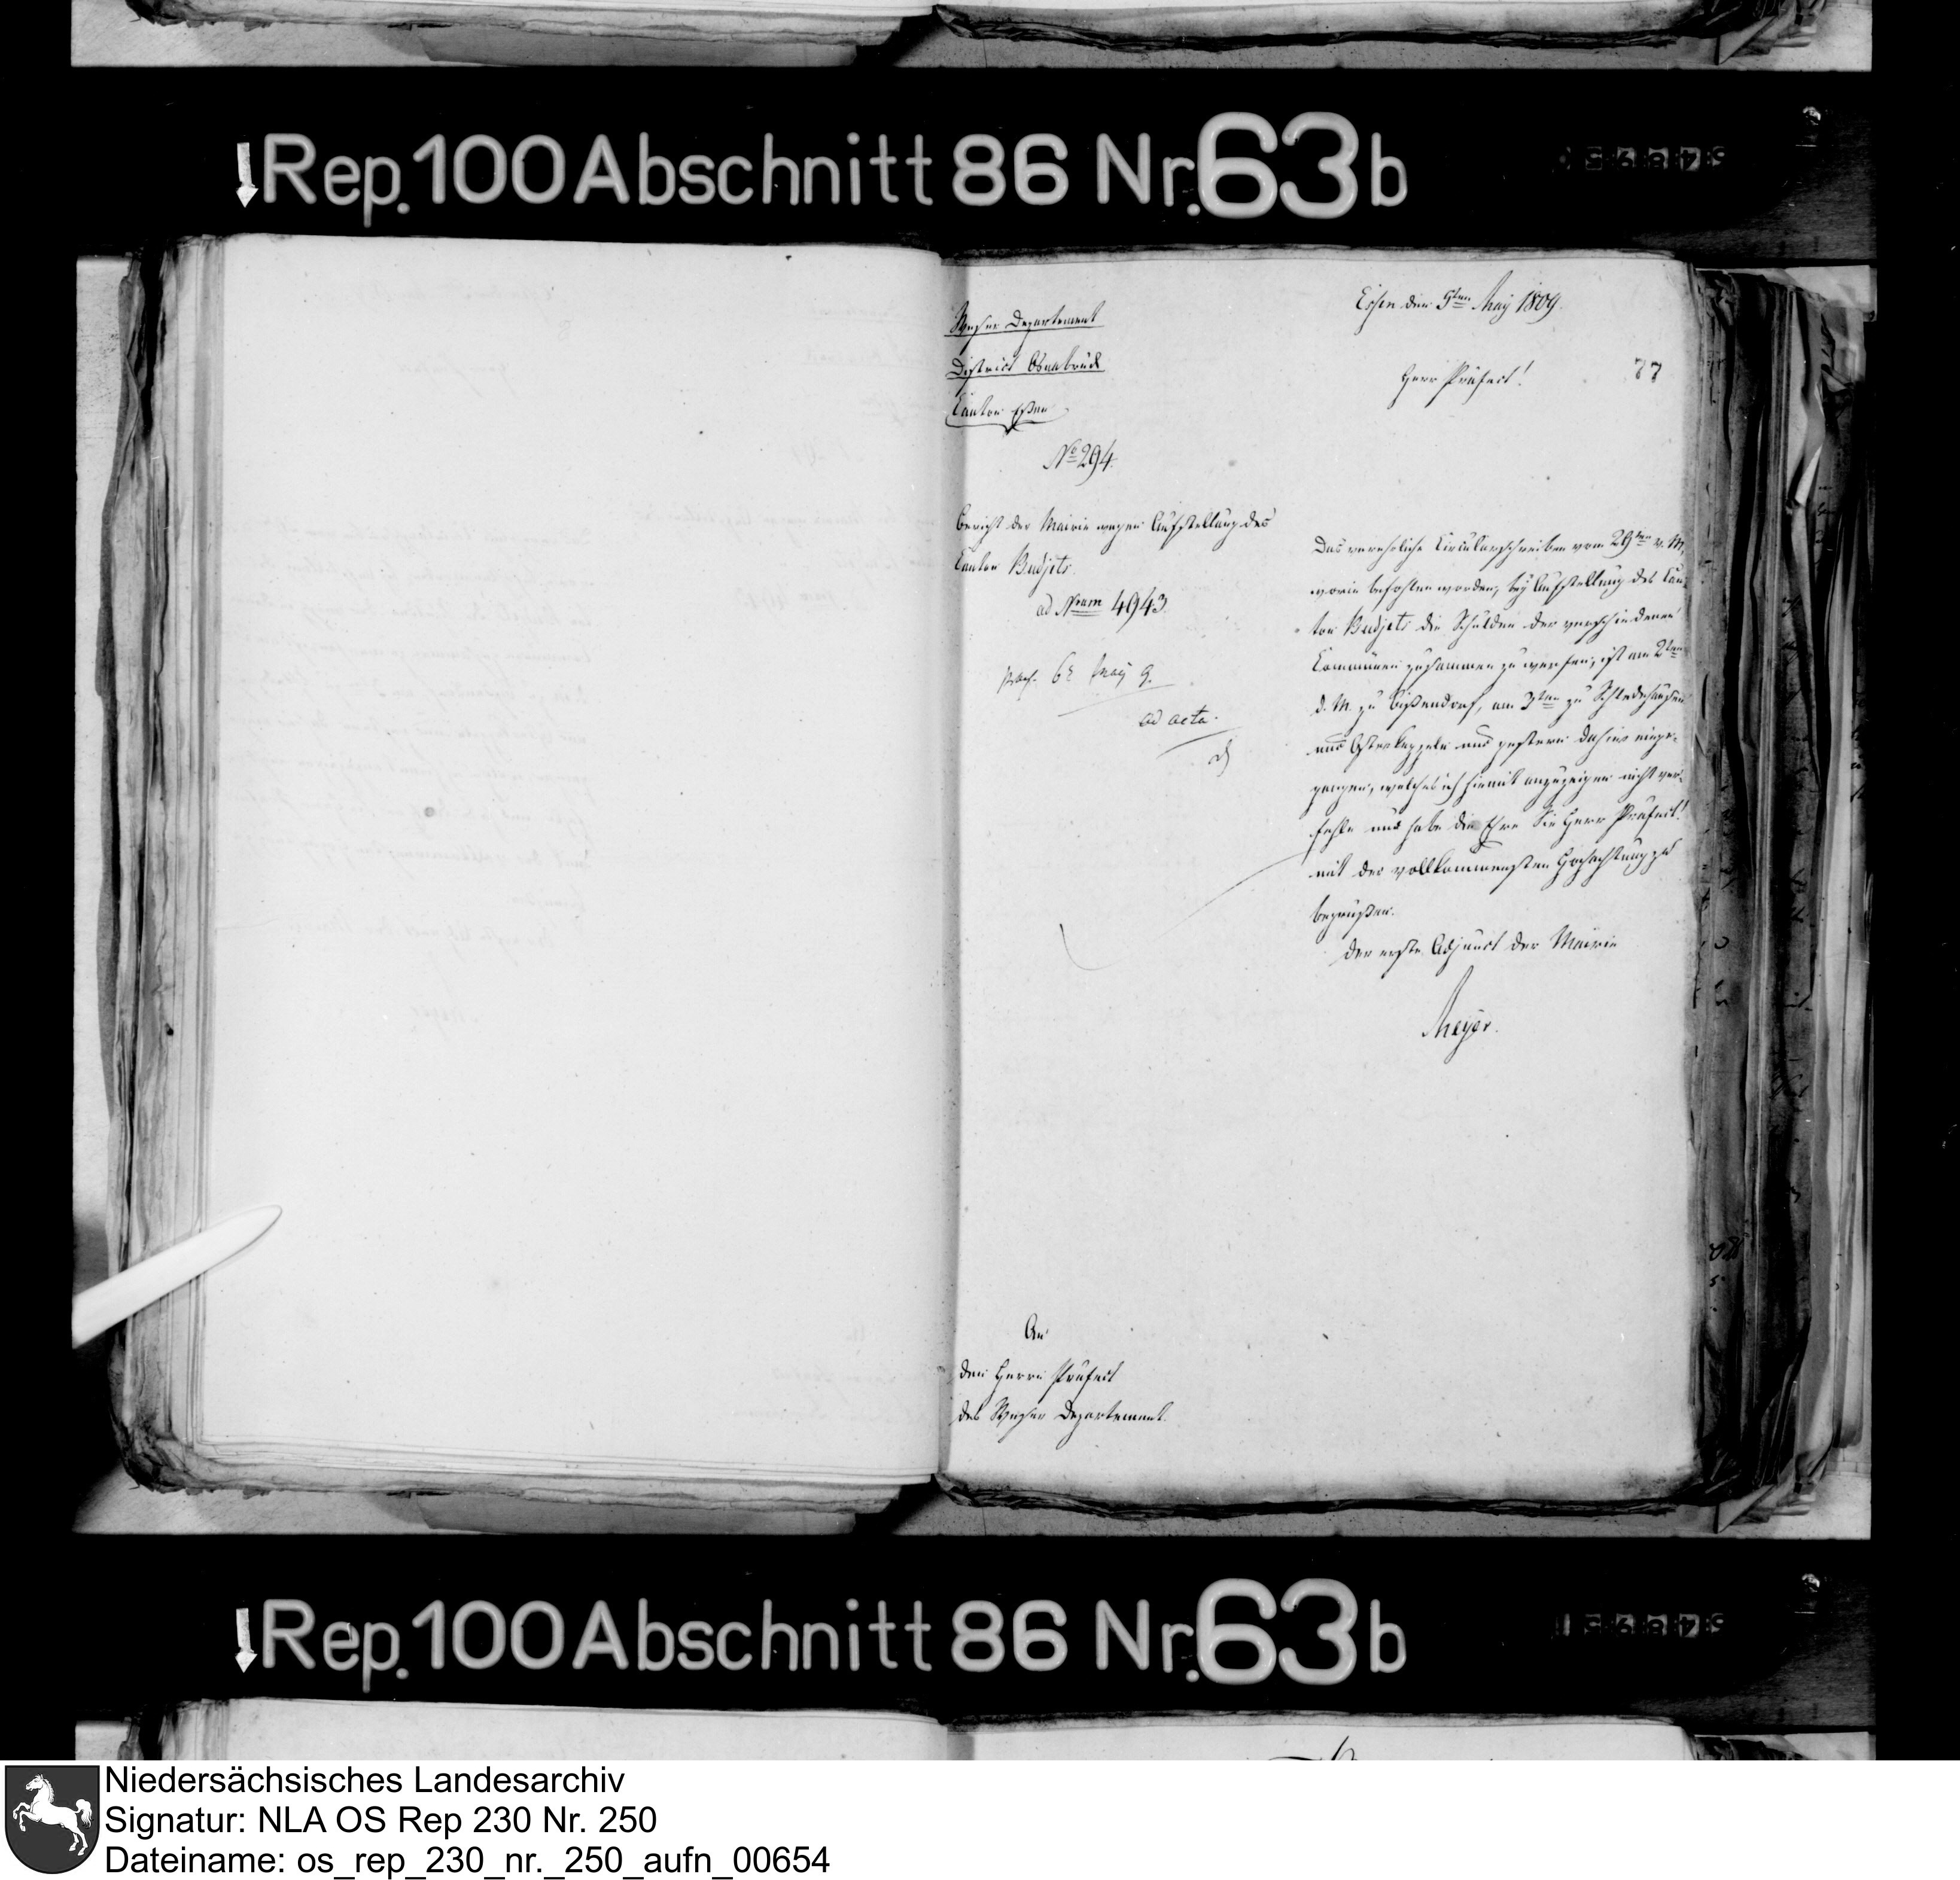 Rep. 100 Abschnitt 86 Nr. 63b
Weser Departement
District Osnabrück
Canton Eßen
No 294.
Bericht der Mairie wegen Aufstellung des
Canton Budjets.
ad Nrum 4943.
praes. 6t May 9.
ad acta.
Essen den 5ten May 1809.
77
Herr Präfect!
Das verehrliche Circularschreiben vom 29ten v. M,
worin befohlen worden, bey Aufstellung des Can-
ton Budjets die Schulden der verschiedenen
Communen zusammen zu werfen, ist am 2ten
d. M. zu Bißendorf, am 3ten zu Schledehausen
und Osterkappeln und gestern dahier einge-
gangen, welches ich hiemit anzuzeigen nicht ver-
fehle und habe die Ehre Sie Herr Präfect!
mit der vollkommensten Hochachtung zu
begrüßen.
Der erste Adjunct der Mairie
Meyer.
An
den Herrn Präfect
des Weser Departement.
Rep. 100 Abschnitt 86 Nr. 63b
Niedersächsisches Landesarchiv
Signatur: NLA OS Rep 230 Nr. 250
Dateiname: os_rep_230_nr._250_aufn_00654